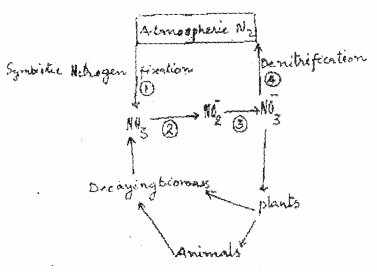 Atmospheric N2
Symbiotic Nitrogen fixation
①
Denitrification
④
NH3
②
NO2-
③
NO3-
Decaying biomass
plants
Animals